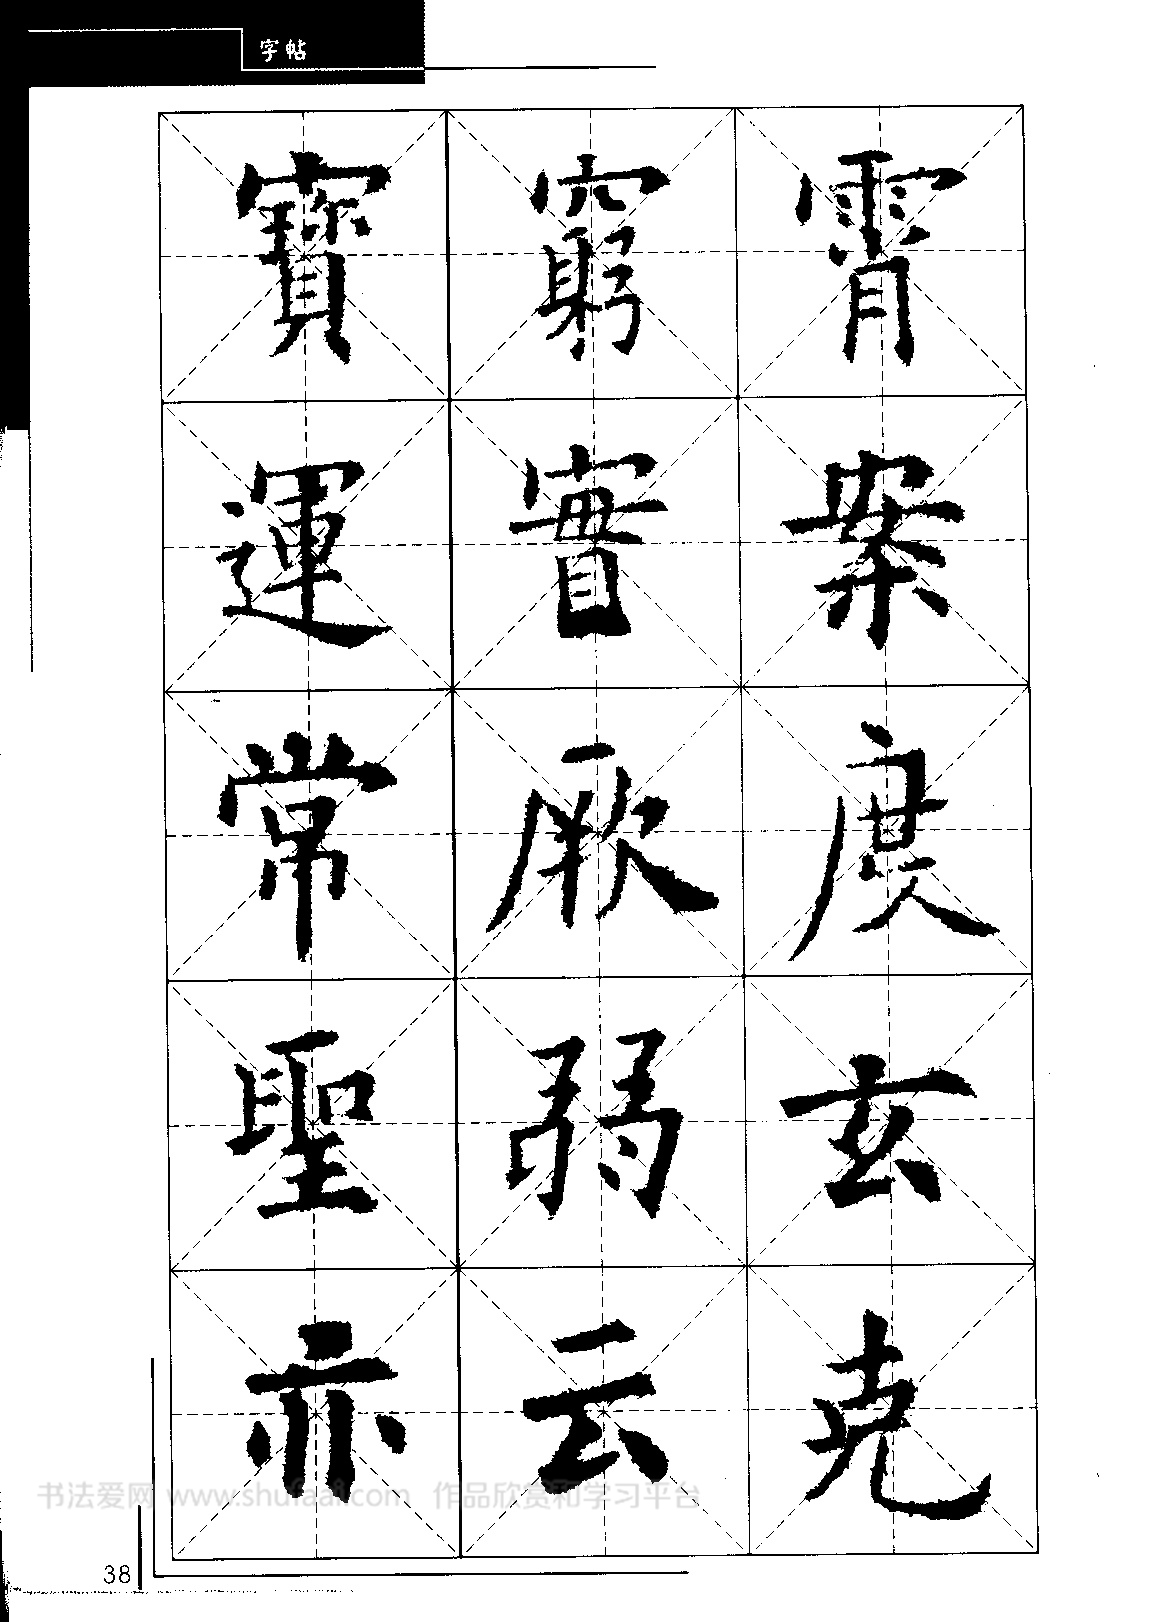 字帖
寶窮霄
運實案
常厥度
聖弱玄
亦云克
书法爱网 www.shufaai.com 作品欣赏和学习平台
38